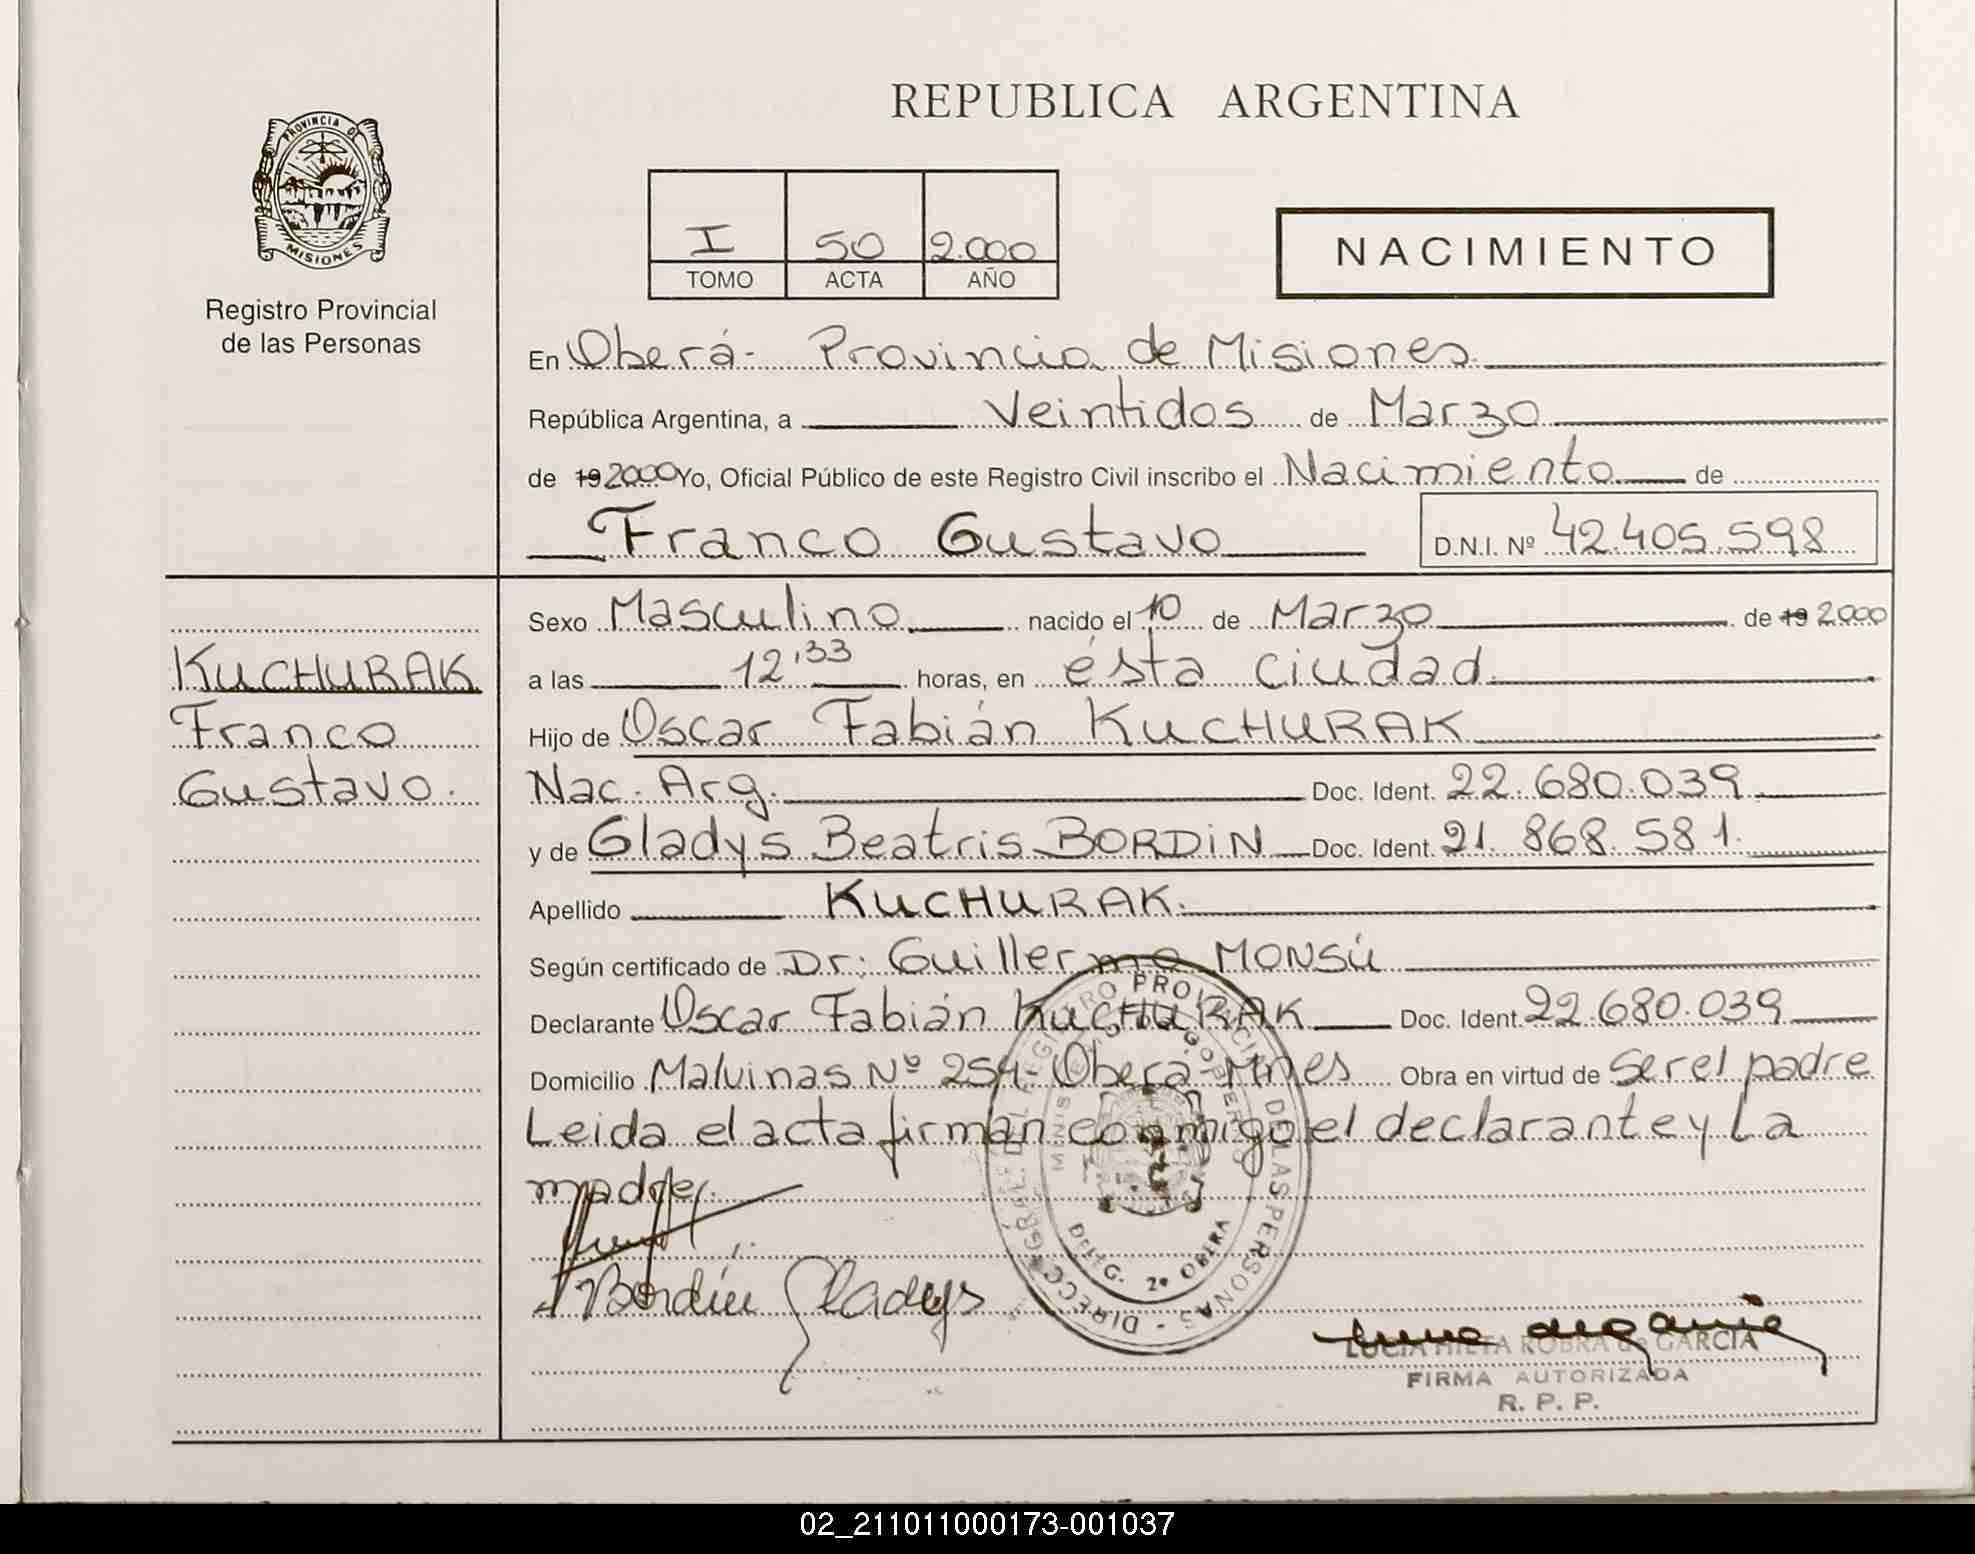 REPUBLICA ARGENTINA
PROVINCIA DE
MISIONES
Registro Provincial
de las Personas
I 50 2.000
TOMO ACTA AÑO
NACIMIENTO
En Oberá- Provincia de Misiones.
República Argentina, a Veintidos de Marzo
de 19 2000 Yo, Oficial Público de este Registro Civil inscribo el Nacimiento de
Franco Gustavo D.N.I. Nº 42.405.598
Sexo Masculino nacido el 10 de Marzo de 19 2000
KUCHURAK
a las 12'33 horas, en ésta ciudad.
Franco
Hijo de Oscar Fabián KUCHURAK
Gustavo.
Nac. Arg. Doc. Ident. 22.680.039
y de Gladys Beatris BORDIN Doc. Ident. 21.868.581.
Apellido KUCHURAK.
Según certificado de Dr: Guillermo MONSÚ
Declarante Oscar Fabián KUCHURAK Doc. Ident. 22.680.039
Domicilio Malvinas Nº 254- Oberá- Mnes Obra en virtud de ser el padre
Leida el acta firman conmigo el declarante y La
madre.
Bordin Gladys
DIRECC. GRAL. DEL REGISTRO PROVINCIAL DE LAS PERSONAS -
DELEG. 2ª OBERA
LUCIA ROBRA de GARCIA
FIRMA AUTORIZADA
R. P. P.
02_211011000173-001037